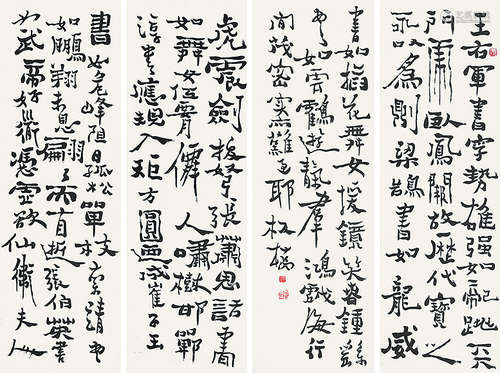 王右軍書字勢雄强如龍跳天
門虎臥鳳閣故歷代寶之
永以為訓梁鵠書如龍威
書如插花舞女援鏡笑春鍾繇
書如雲鶴遊天群鴻戲海行
間茂密實難過耶板橋
虎震劍拔弩張蕭思話書
如舞女低腰僊人嘯樹邯鄲
淳書應規入矩方圓迺成崔子玉
書如危峰阻日孤松單枝索靖書
如鵬翔未息翩翩而自逝張伯英書
如武帝好衟憑虛欲仙衛夫人